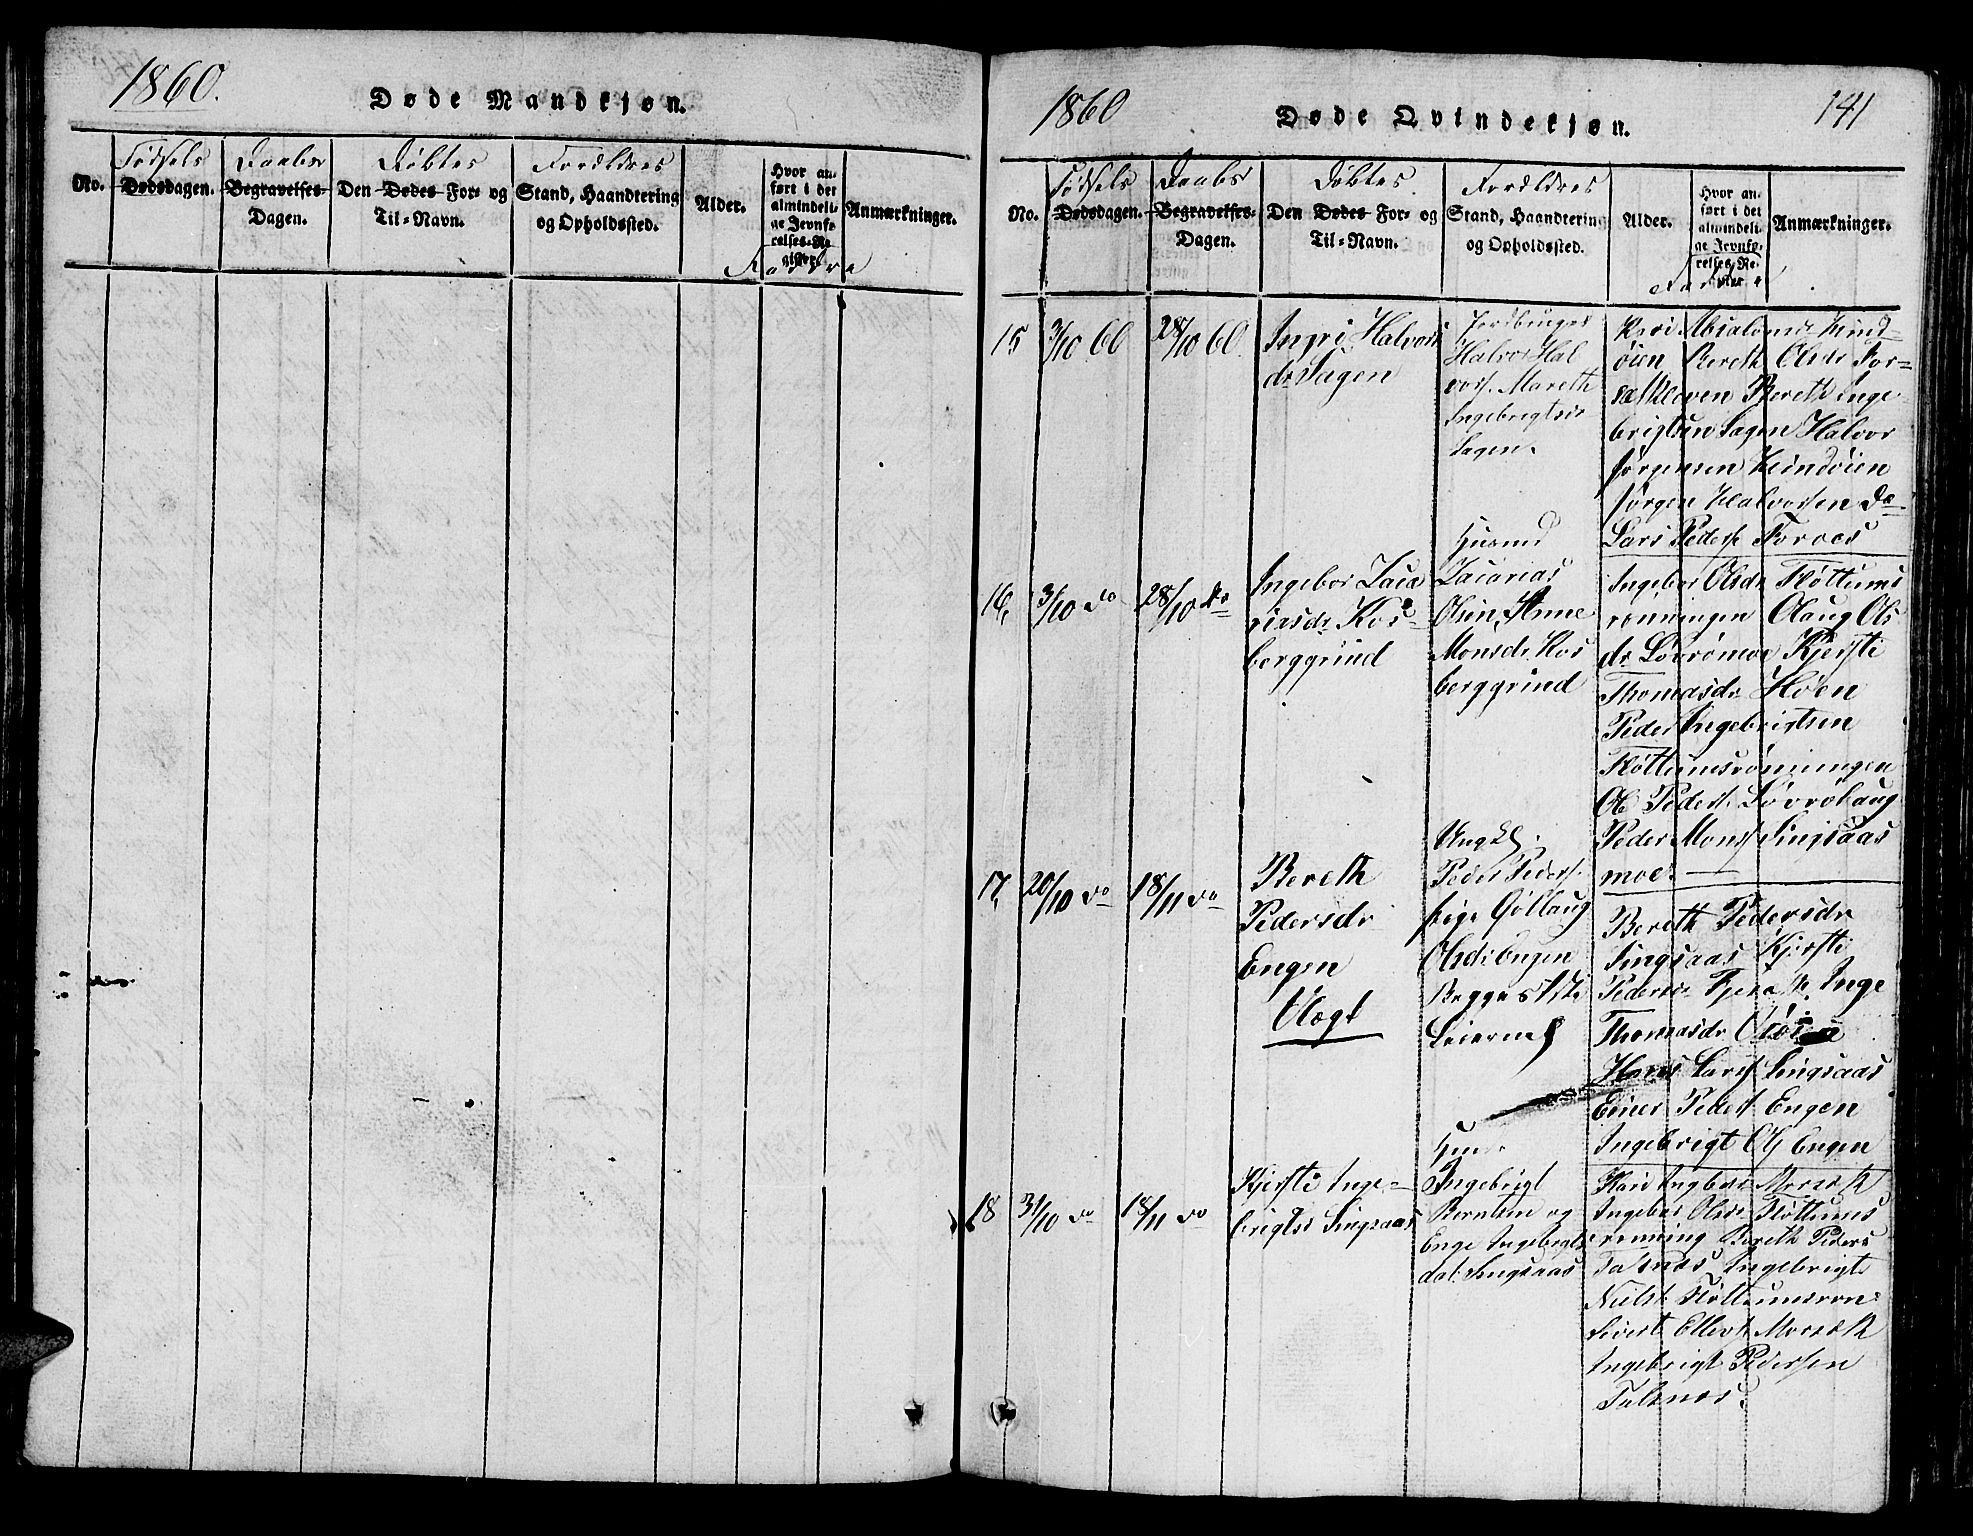 1860.
Døde Mandkjøn.
No.
Fødsels
Dødsdagen.
Daabs
Begravelses-
Dagen.
Døbtes
Den Dødes For- og
Til-Navn.
Forældres
Stand, Haandtering
og Opholdssted.
Alder.
Hvor an-
ført i det
almindeli-
ge Jevnfø-
relses-Re-
gister.
Faddre
Anmærkninger.
1860
Døde Qvindekjøn.
141
No.
Fødsels
Dødsdagen.
Daabs
Begravelses-
Dagen.
Døbtes
Den Dødes For- og
Til-Navn.
Forældres
Stand, Haandtering
og Opholdssted.
Alder.
Hvor an-
ført i det
almindeli-
ge Jevnfø-
relses-Re-
Anmærkninger.
15
3/10 60
28/10 60.
Ingri Halvors
dr Sagen
Halvor Hal
vors. Mareth
Ingebrigtsdr
Sagen.
Kari Absalonsdr Kind-
øien Bereth Olsdr For-
Bereth Inge-
brigtsen Sagen Halvor
Jørgensen Kindøien
Jørgen Halvorsen do
Lars Peders
16,
3/10 do
28/10 do
Ingebor Zaca
riasdr Kos-
berggrind
Husmd
Zacarias
Olsen, Anne
Monsdr Kos
berggrind
Ingebor Olsdr Fløttums
rønningen Olaug Ols
dr Kjersti
Thomasdr Høen
Peder Ingebrigtsen
Fløttumsrønningen
Ole Peders.
Peder Mons Singsaas
moe.
17,
20/10 do
18/11 do
Bereth
Pedersdr
Engen
Uægt
Ungkl.
Peder Peders.
pige Gollaug
Olsdr Engen
Begges
Leierm
Bereth Pedersdr
Singsaas Kjersti
Pedersdr Inge
Thomasdr
Hans Lars Singsaas
Einer Peders Engen
Ingebrigt Ols Engen
18
31/10 do
18/11 do
Kjersti Inge-
brigtsd Singsaas
Ingebrigt
Berntsen og
Enge Ingebrigts
dat. Singsaas
Kari
Ingebor Olsdr Fløttums
rønning Bereth Peders
Talsnes Ingebrigt
Niels. Fløttumsrøn.
Sivert Ellevs
Ingebrigt Pedersen
Talsnes.